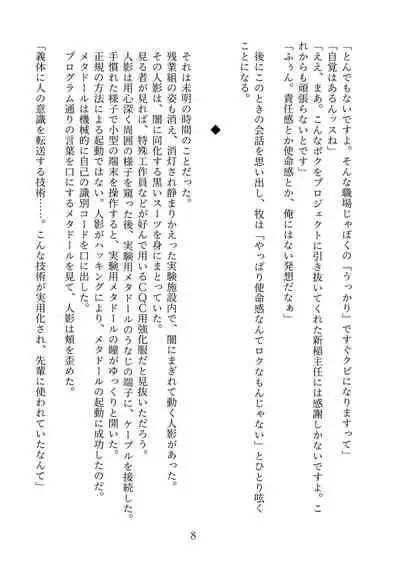 「とんでもないですよ。そんな職場じゃぼくの『うっかり』ですぐクビになりますって」
「自覚はあるんッスね」
「ええ、まあ。こんなボクをプロジェクトに引き抜いてくれた新稲主任には感謝しかないですよ。こ
れからも頑張らないとです」
「ふぅん。責任感とか使命感とか、俺にはない発想だなぁ」
後にこのときの会話を思い出し、牧は「やっぱり使命感なんてロクなもんじゃない」とひとり呟く
ことになる。
◆
それは未明の時間のことだった。
残業組の姿も消え、消灯され静まりかえった実験施設内で、闇にまぎれて動く人影があった。
その人影は、闇に同化する黒いスーツを身にまとっていた。
見る者が見れば、特殊工作員などが好んで用いるCQC用強化服だと見抜いただろう。
人影は用心深く周囲の様子を窺った後、実験用メタドールのうなじの端子に、ケーブルを接続した。
手慣れた様子で小型の端末を操作すると、実験用メタドールの瞳がゆっくりと開いた。
正規の方法による起動ではない。人影がハッキングにより、メタドールの起動に成功したのだ。
メタドールは機械的に自己の識別コードを口に出した。
プログラム通りの言葉を口にするメタドールを見て、人影は頬を歪めた。
「義体に人の意識を転送する技術……。こんな技術が実用化され、先輩に使われていたなんて」
8